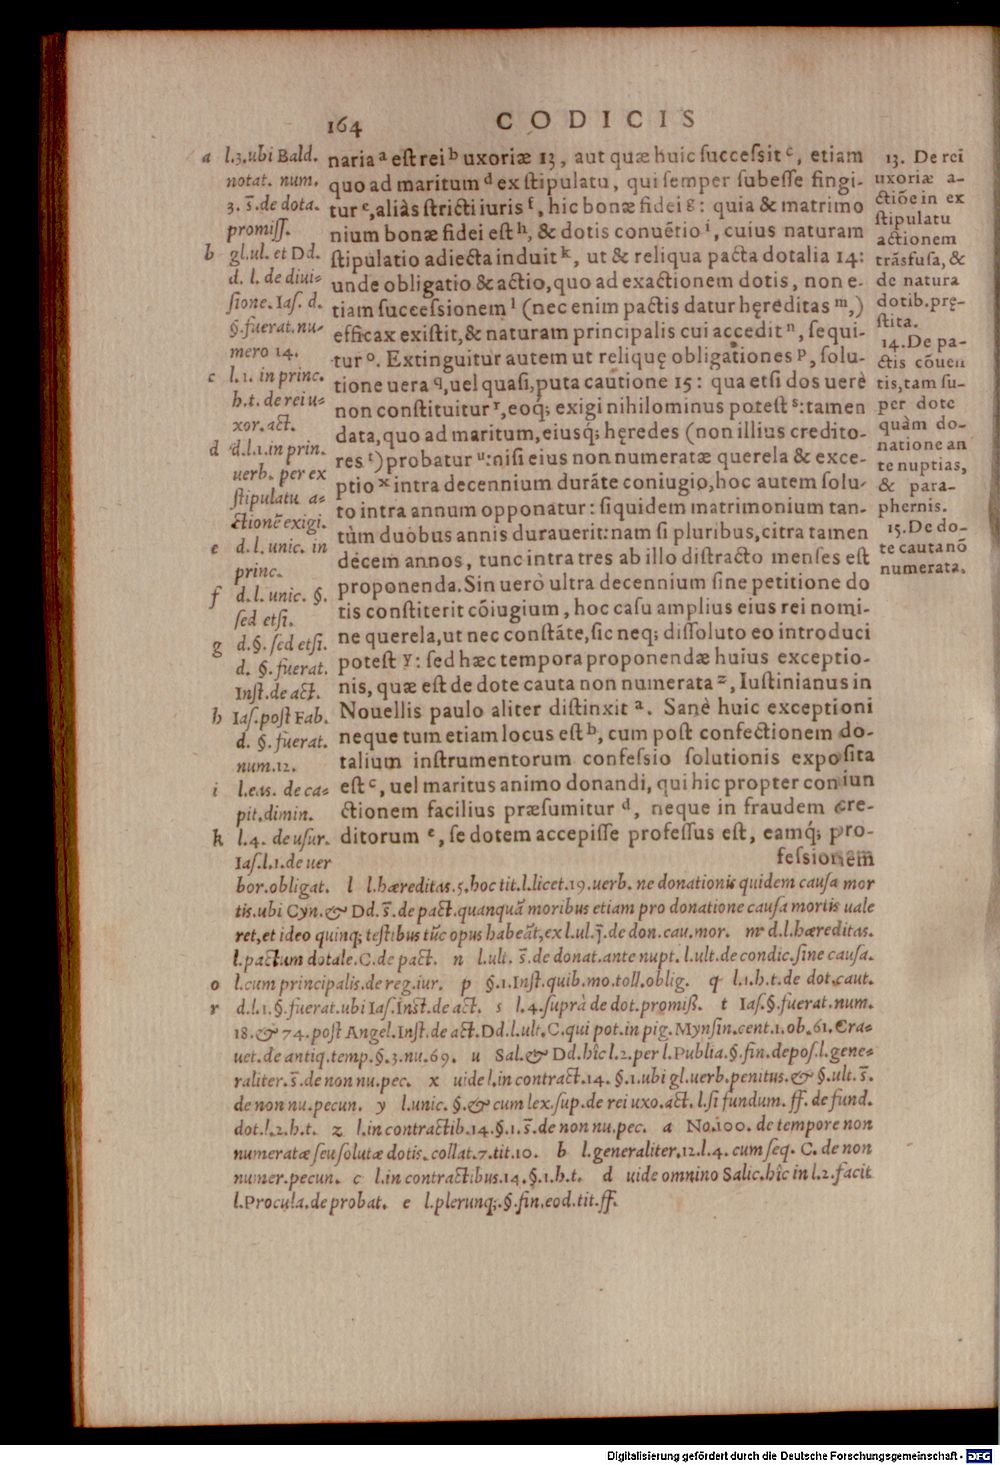 164
CODICIS
naria ᵃ eſt rei ᵇ uxoriæ 13, aut quæ huic ſucceſsit ᶜ, etiam
quo ad maritum ᵈ ex ſtipulatu, qui ſemper ſubeſſe fingi-
tur ᵉ, aliàs ſtricti iuris ᶠ, hic bonæ fidei ᵍ: quia & matrimo
nium bonæ fidei eſt ʰ, & dotis conuẽtio ⁱ, cuius naturam
ſtipulatio adiecta induit ᵏ, ut & reliqua pacta dotalia 14:
unde obligatio & actio, quo ad exactionem dotis, non e-
tiam ſucceſsionem ˡ (nec enim pactis datur hęreditas ᵐ,)
efficax exiſtit, & naturam principalis cui accedit ⁿ, ſequi-
tur ᵒ. Extinguitur autem ut reliquę obligationes ᵖ, ſolu-
tione uera q, uel quaſi, puta cautione 15: qua etſi dos uerè
non conſtituitur ʳ, eoq́; exigi nihilominus poteſt ˢ: tamen
data, quo ad maritum, eiusq́; hęredes (non illius credito-
res ᵗ) probatur ᵘ: niſi eius non numeratæ querela & exce-
ptio ˣ intra decennium durãte coniugio, hoc autem ſolu-
to intra annum opponatur: ſiquidem matrimonium tan-
tùm duobus annis durauerit: nam ſi pluribus, citra tamen
decem annos, tunc intra tres ab illo diſtracto menſes eſt
proponenda. Sin uerò ultra decennium ſine petitione do
tis conſtiterit cõiugium, hoc caſu amplius eius rei nomi-
ne querela, ut nec conſtãte, ſic neq; diſſoluto eo introduci
poteſt ʸ: ſed hæc tempora proponendæ huius exceptio-
nis, quæ eſt de dote cauta non numerata ᶻ, Iuſtinianus in
Nouellis paulo aliter diſtinxit ᵃ. Sanè huic exceptioni
neque tum etiam locus eſt ᵇ, cum poſt confectionem do-
talium inſtrumentorum confeſsio ſolutionis expoſita
eſt ᶜ, uel maritus animo donandi, qui hic propter coniun
ctionem facilius præſumitur ᵈ, neque in fraudem cre-
ditorum ᵉ, ſe dotem accepiſſe profeſſus eſt, eamq́; pro-
feſsionem
a l.3. ubi Bald.
notat. num.
3. s̃. de dota.
promiſſ.
b gl. ul. et Dd.
d. l. de diui-
ſione. Iaſ. d.
§. fuerat. nu-
mero 14.
c l.1. in princ.
h.t. de rei u-
xor. act.
d d.l.1. in prin.
uerb. per ex
ſtipulatu a-
ctionẽ exigi.
e d.l. unic. in
princ.
f d.l. unic. §.
ſed etſi.
g d.§. ſed etſi.
d. §. fuerat.
Inſt. de act.
h Iaſ. poſt Fab.
d. §. fuerat.
num.12.
i l.eas. de ca-
pit. dimin.
k l.4. de uſur.
Iaſ.l.1. de uer
13. De rei
uxoriæ a-
ctiõe in ex
ſtipulatu
actionem
trãsfuſa, &
de natura
dotib. prę-
ſtita.
14. De pa-
ctis cõuen
tis, tam ſu-
per dote
quàm do-
natione an
te nuptias,
& para-
phernis.
15. De do-
te cauta nõ
numerata.
bor. obligat. l l.hæreditas.5. hoc tit. l.licet.19. uerb. ne donationis quidem cauſa mor
tis. ubi Cyn. & Dd. s̃. de pact. quanquã moribus etiam pro donatione cauſa mortis uale
ret, et ideo quinq; teſtibus tũc opus habeãt, ex l.ul. j̃. de don. cau. mor. m d.l.hæreditas.
l.pactum dotale. C. de pact. n l.ult. s̃. de donat. ante nupt. l.ult. de condic. ſine cauſa.
o l.cum principalis. de reg. iur. p §.1. Inſt. quib. mo. toll. oblig. q l.1. h.t. de dot. caut.
r d.l.1. §. fuerat. ubi Iaſ. Inſt. de act. s l.4. ſuprà de dot. promiß. t Iaſ. §. fuerat. num.
18. & 74. poſt Angel. Inſt. de act. Dd. l.ult. C. qui pot. in pig. Mynſin. cent.1. ob.61. Cra-
uet. de antiq. temp. §.3. nu.69. u Sal. & Dd. hîc l.2. per l.Publia. §. fin. depoſ. l.gene-
raliter. s̃. de non nu. pec. x uide l.in contract.14. §.1. ubi gl. uerb. penitus. & §. ult. s̃.
de non nu. pecun. y l.unic. §. & cum lex. ſup. de rei uxo. act. l.ſi fundum. ff. de fund.
dot. l.2. h.t. z l.in contractib.14. §.1. s̃. de non nu. pec. a No.100. de tempore non
numeratæ ſeu ſolutæ dotis. collat.7. tit.10. b l.generaliter.12. l.4. cum ſeq. C. de non
numer. pecun. c l.in contractibus.14. §.1. h.t. d uide omnino Salic. hîc in l.2. facit
l.Procula. de probat. e l.plerunq;. §. fin. eod. tit. ff.
Digitalisierung gefördert durch die Deutsche Forschungsgemeinschaft - DFG